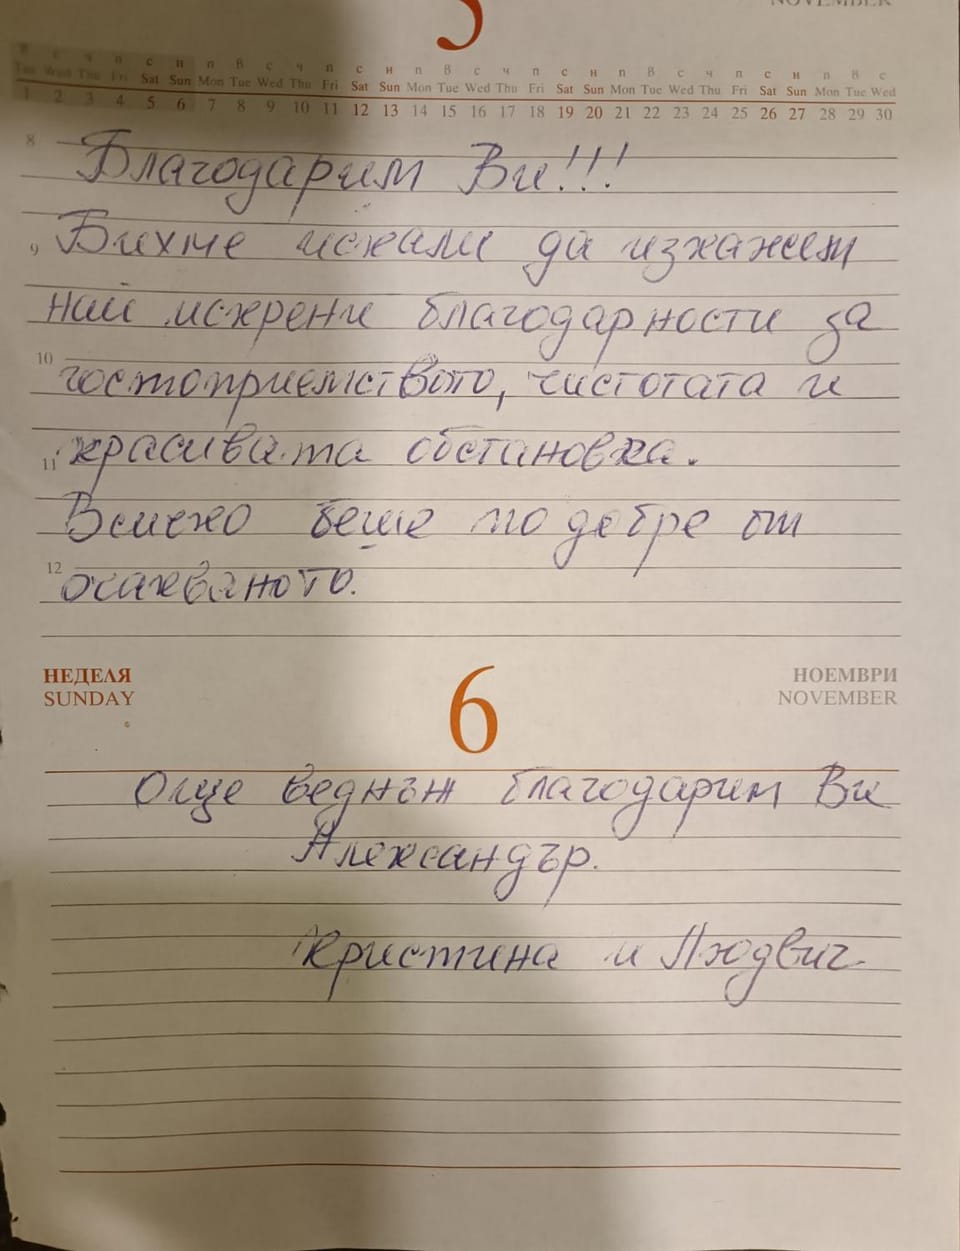 5
NOVEMBER
в с ч п с н п в с ч п с н п в с ч п с н п в с ч п с н п в с
Tue Wed Thu Fri Sat Sun Mon Tue Wed Thu Fri Sat Sun Mon Tue Wed Thu Fri Sat Sun Mon Tue Wed Thu Fri Sat Sun Mon Tue Wed
1 2 3 4 5 6 7 8 9 10 11 12 13 14 15 16 17 18 19 20 21 22 23 24 25 26 27 28 29 30
8 Благодарим Ви!!!
9 Бихме искали да изкажем
най искрени благодарности за
10 гостоприемството, чистотата и
11 красивата обстановка.
Всичко беше по добре от
12 очакваното.
НЕДЕЛЯ 6 НОЕМВРИ
SUNDAY NOVEMBER
Още веднъж благодарим Ви
Александър.
Кристина и Людвиг